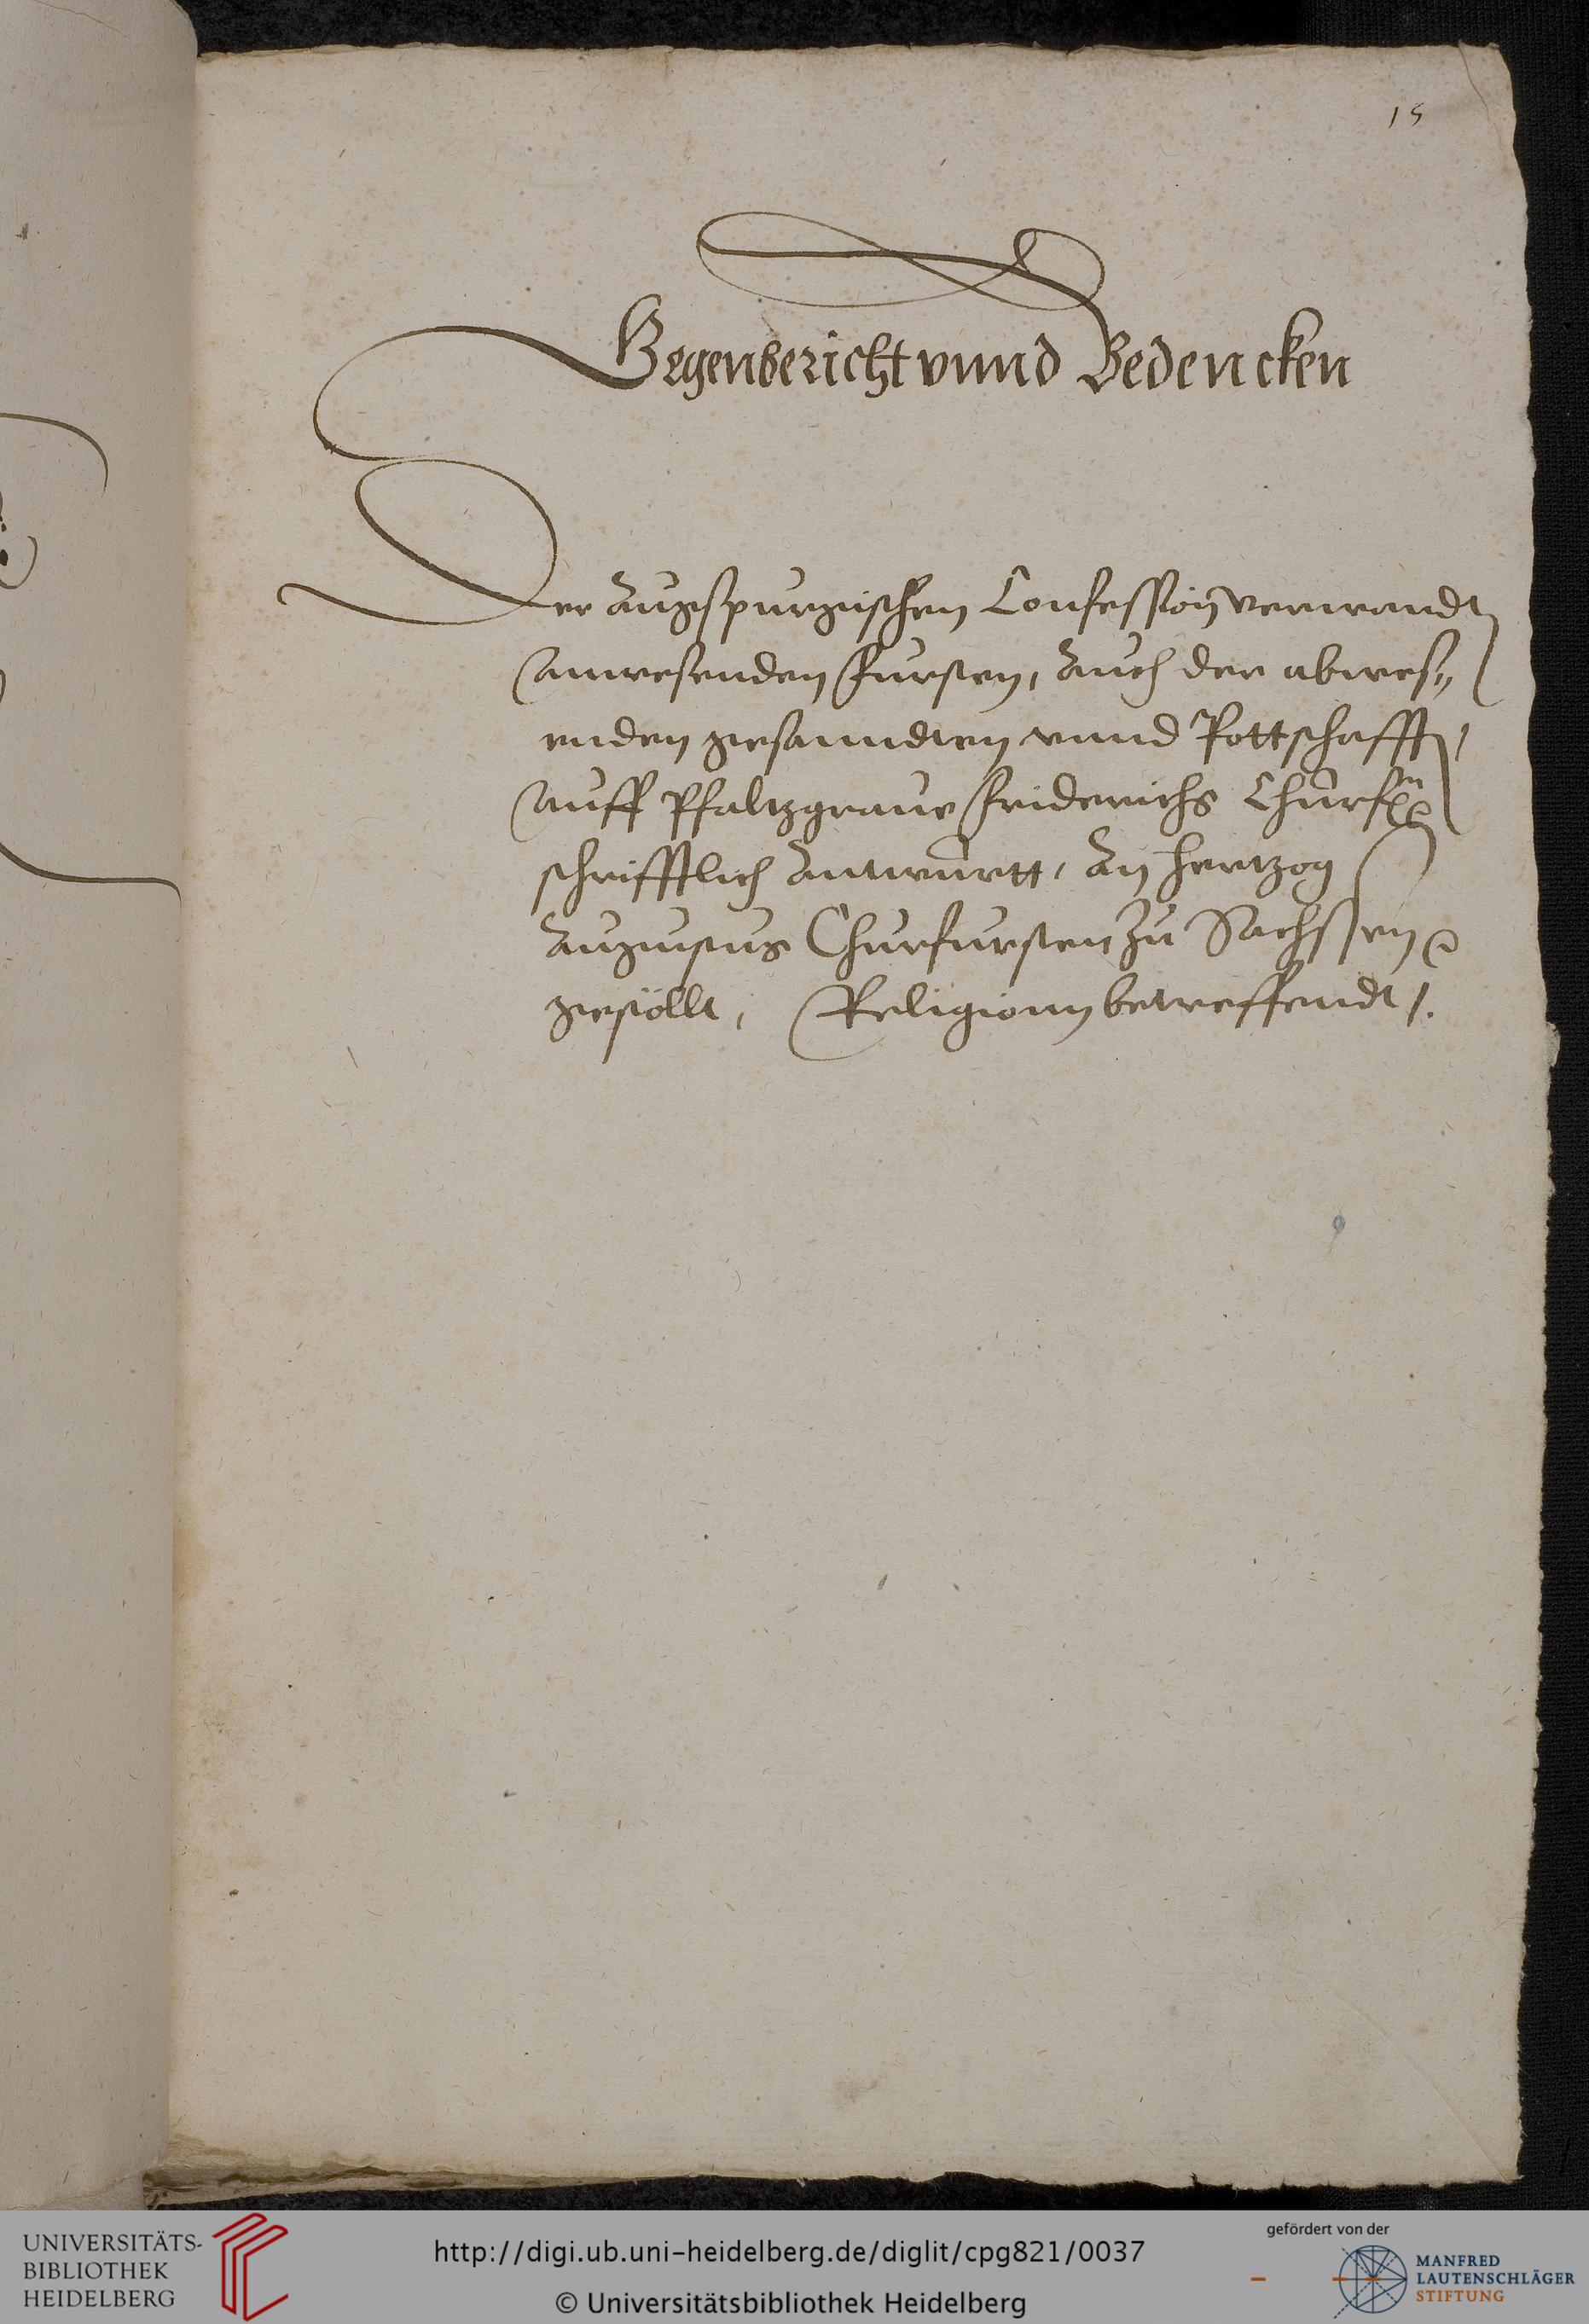 15
Gegenbericht vnnd Bedencken
Der Augspurgischen Confession verwandt
anwesenden Fursten, Auch der abwes„
enden gesanndten vnnd Pottschafft,
auff Pfaltzgraue Friderichs Churf
schrifftlich Antwurtt, An Hertzog
Augustus Churfursten zu Sachssen
gestöllt, Religionn betreffendt /.
UNIVERSITÄTS-
BIBLIOTHEK
HEIDELBERG
http://digi.ub.uni-heidelberg.de/diglit/cpg821/0037
© Universitätsbibliothek Heidelberg
gefördert von der
MANFRED
LAUTENSCHLÄGER
STIFTUNG